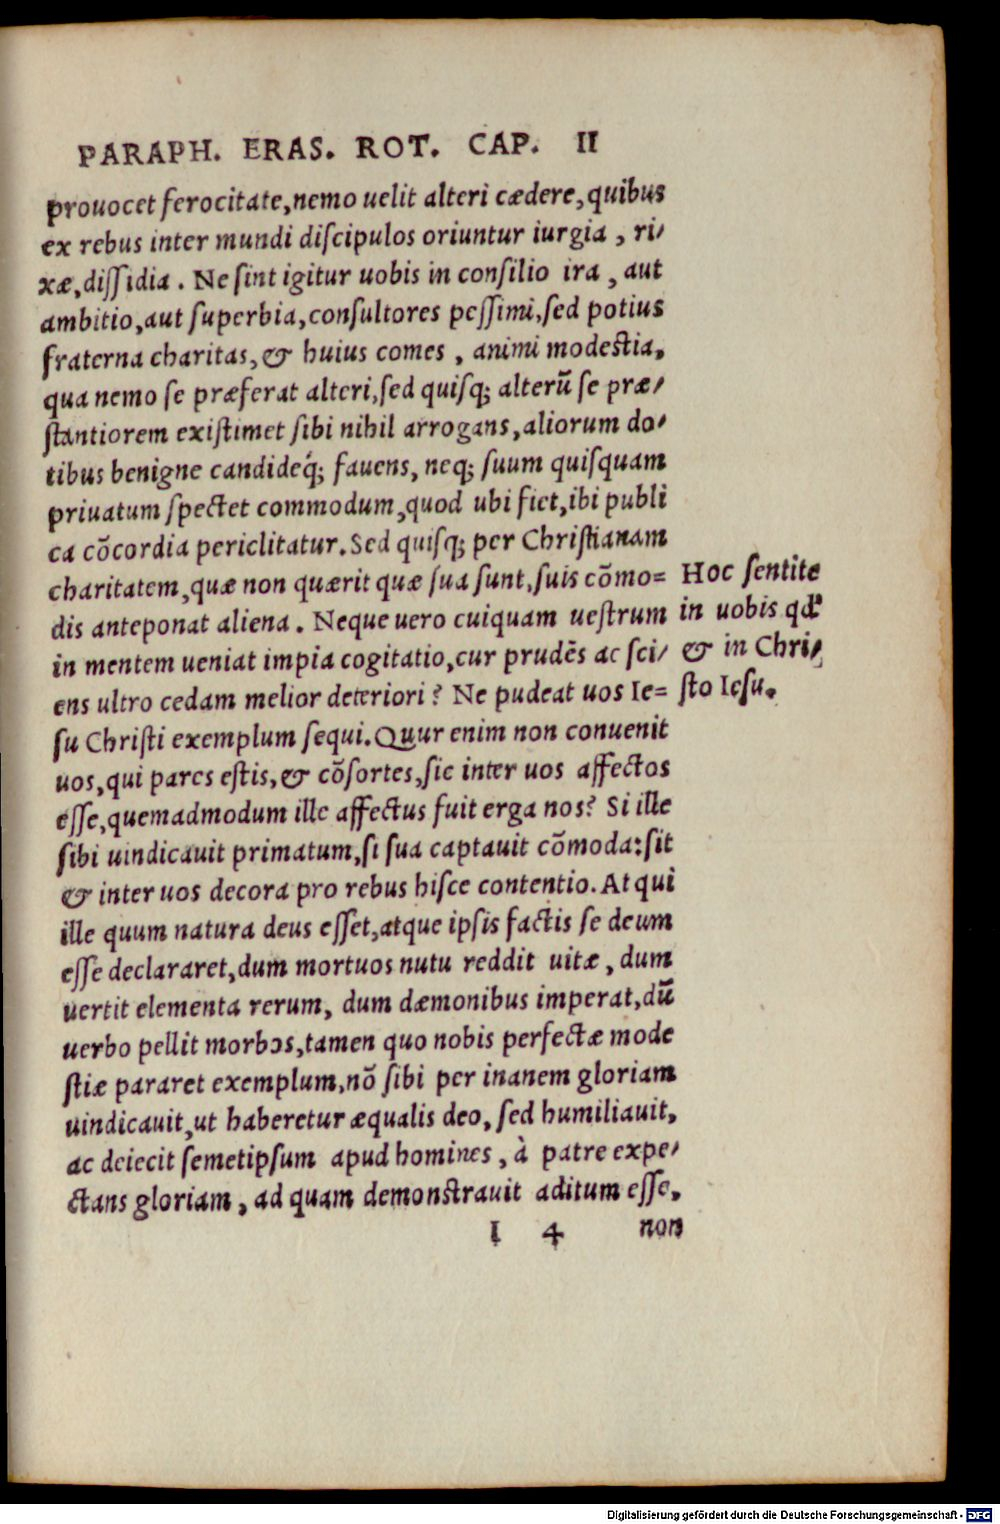 PARAPH. ERAS. ROT. CAP. II
prouocet ferocitate, nemo uelit alteri cædere, quibus
ex rebus inter mundi discipulos oriuntur iurgia, ri/
xæ, dissidia. Ne sint igitur uobis in consilio ira, aut
ambitio, aut superbia, consultores pessimi, sed potius
fraterna charitas, & huius comes, animi modestia,
qua nemo se præferat alteri, sed quisq; alterū se præ/
stantiorem existimet sibi nihil arrogans, aliorum do/
tibus benigne candideq́; fauens, neq; suum quisquam
priuatum spectet commodum, quod ubi fiet, ibi publi
ca cōcordia periclitatur. Sed quisq; per Christianam
charitatem, quæ non quærit quæ sua sunt, suis cōmo=
dis anteponat aliena. Neque uero cuiquam uestrum
in mentem ueniat impia cogitatio, cur prudēs ac sci/
ens ultro cedam melior deteriori? Ne pudeat uos Ie=
su Christi exemplum sequi. Quur enim non conuenit
uos, qui pares estis, & cōsortes, sic inter uos affectos
esse, quemadmodum ille affectus fuit erga nos? Si ille
sibi uindicauit primatum, si sua captauit cōmoda: sit
& inter uos decora pro rebus hisce contentio. At qui
ille quum natura deus esset, atque ipsis factis se deum
esse declararet, dum mortuos nutu reddit uitæ, dum
uertit elementa rerum, dum dæmonibus imperat, dū
uerbo pellit morbos, tamen quo nobis perfectæ mode
stiæ pararet exemplum, nō sibi per inanem gloriam
uindicauit, ut haberetur æqualis deo, sed humiliauit,
ac deiecit semetipsum apud homines, à patre expe/
ctans gloriam, ad quam demonstrauit aditum esse,
I 4 non
Hoc sentite
in uobis qd'
& in Chri/
sto Iesu.
Digitalisierung gefördert durch die Deutsche Forschungsgemeinschaft - DFG